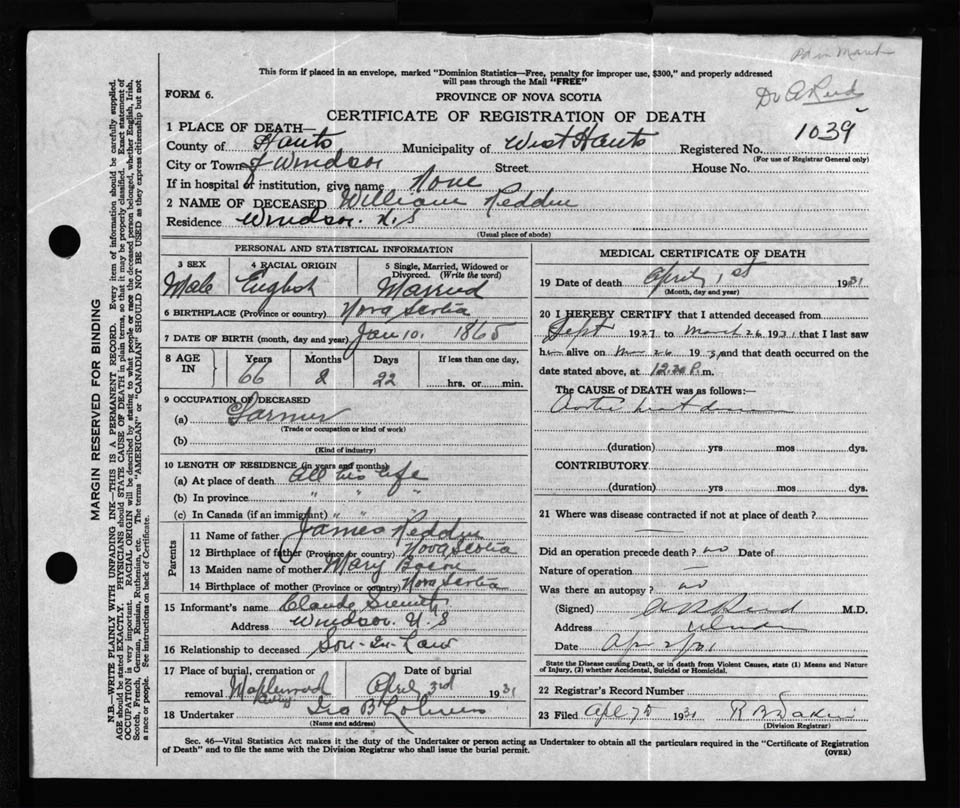 This form if placed in an envelope, marked "Dominion Statistics—Free, penalty for improper use, $300," and properly addressed
will pass through the Mail "FREE"
FORM 6.
PROVINCE OF NOVA SCOTIA
Dr A Reid
CERTIFICATE OF REGISTRATION OF DEATH
1039
1 PLACE OF DEATH—
County of Hants Municipality of West Hants Registered No.
(For use of Registrar General only)
City or Town of Windsor Street House No.
If in hospital or institution, give name None
2 NAME OF DECEASED William Redden
Residence Windsor. N.S
(Usual place of abode)
PERSONAL AND STATISTICAL INFORMATION
3 SEX
Male
4 RACIAL ORIGIN
English
5 Single, Married, Widowed or
Divorced. (Write the word)
Married
6 BIRTHPLACE (Province or country) Nova Scotia
7 DATE OF BIRTH (month, day and year) Jan 10. 1865
8 AGE IN
Years Months Days If less than one day,
66 2 22 hrs. or min.
9 OCCUPATION OF DECEASED
(a) Farmer
(Trade or occupation or kind of work)
(b)
(Kind of industry)
10 LENGTH OF RESIDENCE (in years and months)
(a) At place of death All his life
(b) In province " " "
(c) In Canada (if an immigrant) " " "
Parents
11 Name of father James Redden
12 Birthplace of father (Province or country) Nova Scotia
13 Maiden name of mother Mary
14 Birthplace of mother (Province or country) Nova Scotia
15 Informant's name Claude
Address Windsor. N.S
16 Relationship to deceased Son-In-Law
17 Place of burial, cremation or Date of burial
removal Maplewood April 3rd 1931
18 Undertaker Ira B
(Name and address)
MEDICAL CERTIFICATE OF DEATH
19 Date of death April 1st 1931
(Month, day and year)
20 I HEREBY CERTIFY that I attended deceased from
Sept 1927 to March 26 1931 that I last saw
him alive on Mar 26 1931, and that death occurred on the
date stated above, at 12.20 P.m.
The CAUSE of DEATH was as follows:—
Aortic heart disease
(duration) yrs mos dys.
CONTRIBUTORY
(duration) yrs mos dys.
21 Where was disease contracted if not at place of death?
Did an operation precede death? no Date of
Nature of operation —
Was there an autopsy? no
(Signed) Reid M.D.
Address Windsor
Date Apr 2/31
State the Disease causing Death, or in death from Violent Causes, state (1) Means and Nature
of Injury, (2) whether Accidental, Suicidal or Homicidal.
22 Registrar's Record Number
23 Filed Apl 1931 R B
(Division Registrar)
Sec. 46—Vital Statistics Act makes it the duty of the Undertaker or person acting as Undertaker to obtain all the particulars required in the "Certificate of Registration
of Death" and to file the same with the Division Registrar who shall issue the burial permit. (OVER)
MARGIN RESERVED FOR BINDING
N.B.—WRITE PLAINLY WITH UNFADING INK—THIS IS A PERMANENT RECORD. Every item of information should be carefully supplied.
AGE should be stated EXACTLY. PHYSICIANS should STATE CAUSE OF DEATH in plain terms, so that it may be properly classified. Exact statement of
OCCUPATION is very important. RACIAL ORIGIN will be described by stating to what people or race the deceased person belonged, whether English, Irish,
Scotch, French, German, Russian, Ruthenian, etc. The terms "AMERICAN" or "CANADIAN" SHOULD NOT BE USED as they express citizenship but not
a race or people. See instructions on back of Certificate.